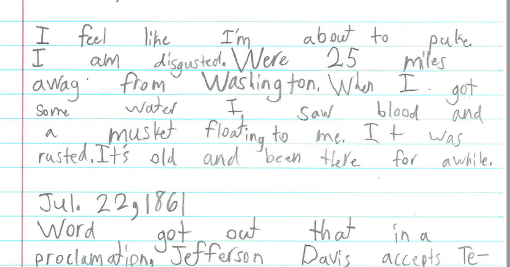 I feel like I'm about to puke
I am disgusted. Were 25 miles
away from Washington. When I got
some water I saw blood and
a musket floating to me. It was
rusted. It's old and been there for awhile.
Jul. 22, 1861
Word got out that in a
proclamation, Jefferson Davis accepts Te-